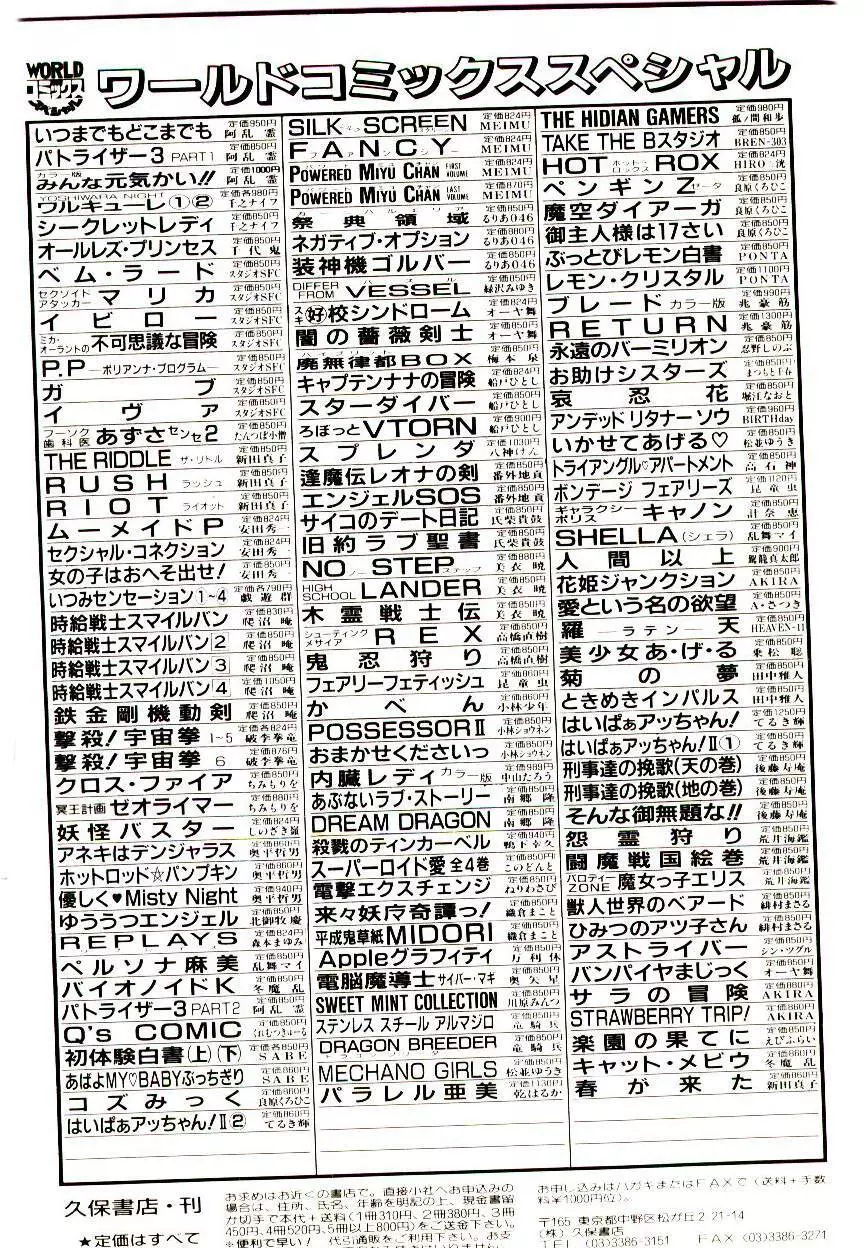 WORLD
コミックス
スペシャル
ワールドコミックススペシャル
いつまでもどこまでも 定価950円 阿乱霊
パトライザー3 PART1 定価850円 阿乱霊
カラー版 みんな元気かい!! 定価1000円 阿乱霊
YOSHIWARA NIGHT ワルキューレ①② 定価各980円 千之ナイフ
シークレットレディ 定価850円 千之ナイフ
オールレズ・プリンセス 定価850円 千代鬼
ベム・ラード 定価850円 スタジオSFC
セクソイドアタッカー マリカ 定価850円 スタジオSFC
イビロー 定価850円 スタジオSFC
ミカ・オーラントの不可思議な冒険 定価850円 スタジオSFC
P.P —ポリアンナ・プログラム— 定価850円 スタジオSFC
ガブ 定価850円 スタジオSFC
イヴァ 定価850円 スタジオSFC
フーゾク歯科医 あずさセンセ2 定価850円 たんつぼ小僧
THE RIDDLE ザ・リドル 定価850円 新田真子
RUSH ラッシュ 定価850円 新田真子
RIOT ライオット 定価850円 新田真子
ムーメイドP 定価824円 安田秀一
セクシャル・コネクション 定価824円 安田秀一
女の子はおへそ出せ! 定価850円 安田秀一
いつみセンセーション1~4 定価各790円 戯遊群
時給戦士スマイルバン 定価830円 爬沼曉
時給戦士スマイルバン[2] 定価850円
時給戦士スマイルバン[3] 定価850円
時給戦士スマイルバン[4] 定価1050円
鉄金剛機動剣 定価850円
撃殺!宇宙拳 1~5 定価各824円 破李拳竜
撃殺!宇宙拳 6 定価876円 破李拳竜
クロス・ファイア 定価850円 ちみもりを
冥王計画ゼオライマー 定価880円 ちみもりを
妖怪バスター 定価824円 しのざき嶺
アネキはデンジャラス 定価860円 奥平哲男
ホットロッド☆パンプキン 定価850円 奥平哲男
優しく♥Misty Night 定価940円 奥平哲男
ゆううつエンジェル 定価850円 北御牧慶
REPLAYS 定価824円 森本まゆみ
ペルソナ麻美 定価850円 乱舞マイ
バイオノイドK 定価850円 冬魔乱
パトライザー3 PART2 定価850円 阿乱霊
Q's COMIC 定価850円 くれむつきゅーる
初体験白書(上)(下) 定価各850円 SABE
あばよMY♡BABYぶっちぎり 定価860円 SABE
コズみっく 定価860円 良原くろひこ
はいぱぁアッちゃん!Ⅱ② 定価860円 てるき輝
SILK SCREEN 定価824円 MEIMU
FANCY ファンシー 定価824円 MEIMU
POWERED MIYU CHAN FIRST VOLUME 定価824円 MEIMU
POWERED MIYU CHAN LAST VOLUME 定価870円 MEIMU
祭典領域 定価850円 るりあ046
ネガティブ・オプション 定価880円 るりあ046
装神機ゴルバー 定価850円 るりあ046
DIFFER FROM VESSEL 定価850円 緑沢みゆき
スキ(好)校シンドローム 定価824円 オーヤ舞
闇の薔薇剣士 定価850円 オーヤ舞
廃無律都BOX 定価850円 梅本泉
キャプテンナナの冒険 定価824円 船戸ひとし
スターダイバー 定価850円 船戸ひとし
ろぼっとVTORN 定価900円 船戸ひとし
スプレンダ 定価1030円 八神けん
逢魔伝レオナの剣 定価850円 番外地貢
エンジェルSOS 定価850円 番外地貢
サイコのデート日記 定価850円 氏柴貴鼓
旧約ラブ聖書 定価850円 氏柴貴鼓
NO STEP ステップ 定価880円 美衣暁
HIGH SCHOOL LANDER 定価850円 美衣暁
木霊戦士伝 定価850円 美衣暁
シューティングメサイア REX 定価850円 高橋直樹
鬼忍狩り 定価850円 高橋直樹
フェアリーフェティッシュ 定価860円 昆童虫
かべん 定価860円 小林少年
POSSESSORⅡ 定価850円 小林ショウネン
おまかせくださいっ 定価850円 小林ショウネン
内臓レディ カラー版 定価989円 中山たろう
あぶないラブ・ストーリー 定価850円 南郷隆
DREAM DRAGON 定価850円 南郷隆
殺戮のティンカーベル 定価940円 鴨下幸久
スーパーロイド愛 全4巻 定価各850円 このどんと
電撃エクスチェンジ 定価850円 ねりわさび
来々妖序奇譚っ! 定価850円 織倉まこと
平成鬼草紙MIDORI 定価850円 織倉まこと
Appleグラフィティ 定価850円 万利休
電脳魔導士 サイバー・マギ 定価850円 奥矢星
SWEET MINT COLLECTION 定価850円 川原みんつ
ステンレス スチール アルマジロ 定価850円 竜騎兵
DRAGON BREEDER 定価850円 竜騎兵
MECHANO GIRLS 定価860円 松並ゆうき
パラレル亜美 定価1130円 乾はるか
THE HIDIAN GAMERS 定価980円 孤ノ間和歩
TAKE THE Bスタジオ 定価850円 BREN-303
HOT ROX ホットロックス 定価824円 HIRO洸
ペンギンZ ゼータ 定価850円 良原くろひこ
魔空ダイアーガ 定価850円 良原くろひこ
御主人様は17さい 定価850円 良原くろひこ
ぶっとびレモン白書 定価850円 PONTA
レモン・クリスタル 定価1100円 PONTA
ブレード カラー版 定価990円 兆豪筋
RETURN 定価1300円 兆豪筋
永遠のバーミリオン 定価850円 忍野しのぶ
お助けシスターズ 定価850円 まつもと千春
哀忍花 定価850円 堀江なおと
アンデッドリタナー ソウ 定価960円 BIRTHday
いかせてあげる♡ 定価850円 松並ゆうき
トライアングル♡アパートメント 定価850円 高石神
ボンデージ フェアリーズ 定価1120円 昆童虫
ギャラクシーポリス キャノン 定価850円 計奈恵
SHELLA(シェラ) 定価850円 乱舞マイ
人間以上 定価900円 駕籠真太郎
花姫ジャンクション 定価850円 AKIRA
愛という名の欲望 定価850円 A・さつき
羅ーラテンー天 定価850円 HEAVEN-11
美少女あ・げ・る 定価850円 乗松聡
菊の夢 定価850円 田中雅人
ときめきインパルス 定価850円 田中雅人
はいぱぁアッちゃん! 定価1250円 てるき輝
はいぱぁアッちゃん!Ⅱ① 定価850円 てるき輝
刑事達の挽歌(天の巻) 定価850円 後藤寿庵
刑事達の挽歌(地の巻) 定価850円 後藤寿庵
そんな御無題な!! 定価850円 後藤寿庵
怨霊狩り 定価850円 荒井海鑑
闘魔戦国絵巻 定価850円 荒井海鑑
パロティーZONE 魔女っ子エリス 定価850円 荒井海鑑
獣人世界のベアード 定価850円 緋村まさる
ひみつのアツ子さん 定価850円 緋村まさる
アストライバー 定価850円 シン・ツグル
バンパイヤまじっく 定価850円 オーヤ舞
サラの冒険 定価860円 AKIRA
STRAWBERRY TRIP! 定価860円 AKIRA
楽園の果てに 定価850円 えびふらい
キャット・メビウ 定価860円 冬魔乱
春が来た 定価860円 新田真子
久保書店・刊
★定価はすべて
お求めはお近くの書店で。直接小社へお申込みの
場合は、住所、氏名、年齢を明記の上、現金書留
か切手で本代+送料(1冊310円、2冊380円、3冊
450円、4冊520円、5冊以上800円)をご送金下さい。
※便利で早い! 代引通販をご利用下さい。お支
お申し込みはハガキまたはFAXで(送料+手数
料¥1000円位)。
〒165 東京都中野区松が丘2-21-14
(株)久保書店
TEL (03)3386-3151 FAX (03)3386-3271